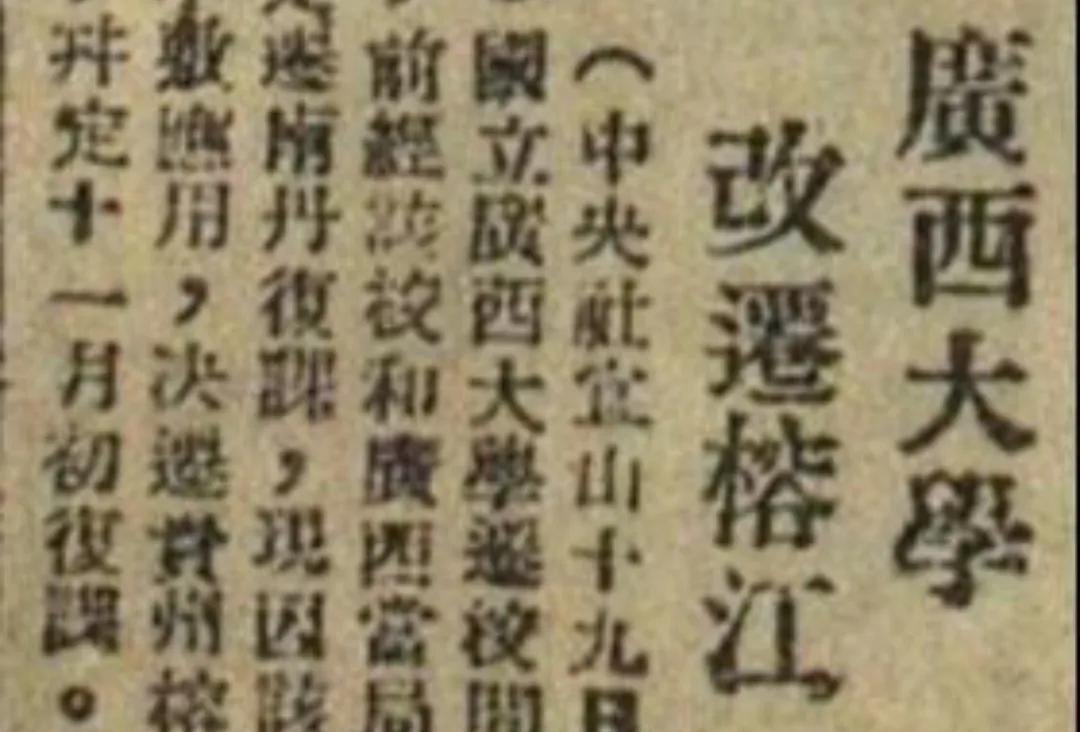 廣西大學
改遷榕江
（中央社宜山十九日
國立廣西大學遷校問
前經該校和廣西當局
遷南丹復課，現因該
敷應用，决遷貴州榕
幷定十一月初復課。